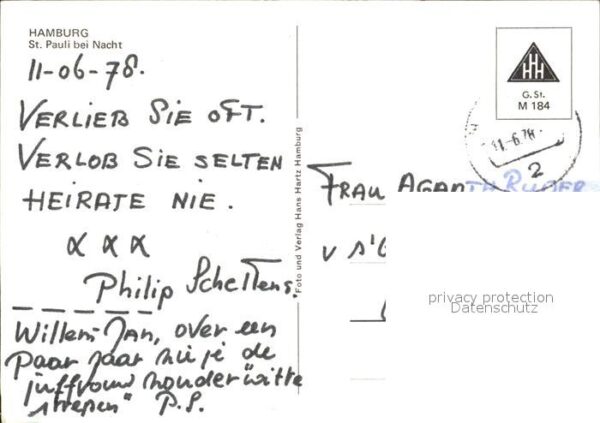 HAMBURG
St. Pauli bei Nacht
11-06-78.
VERLIEB SIE OFT.
VERLOB SIE SELTEN
HEIRATE NIE.
x x x
Philip Schellens.
Willem-Jan, over een
paar jaar zie je de
juffrouw zonder "witte
strepen" P.S.
Foto und Verlag Hans Hartz Hamburg
HHH
G. St.
M 184
11.-6.78
2
FRAU AGAN
V S'G
privacy protection
Datenschutz